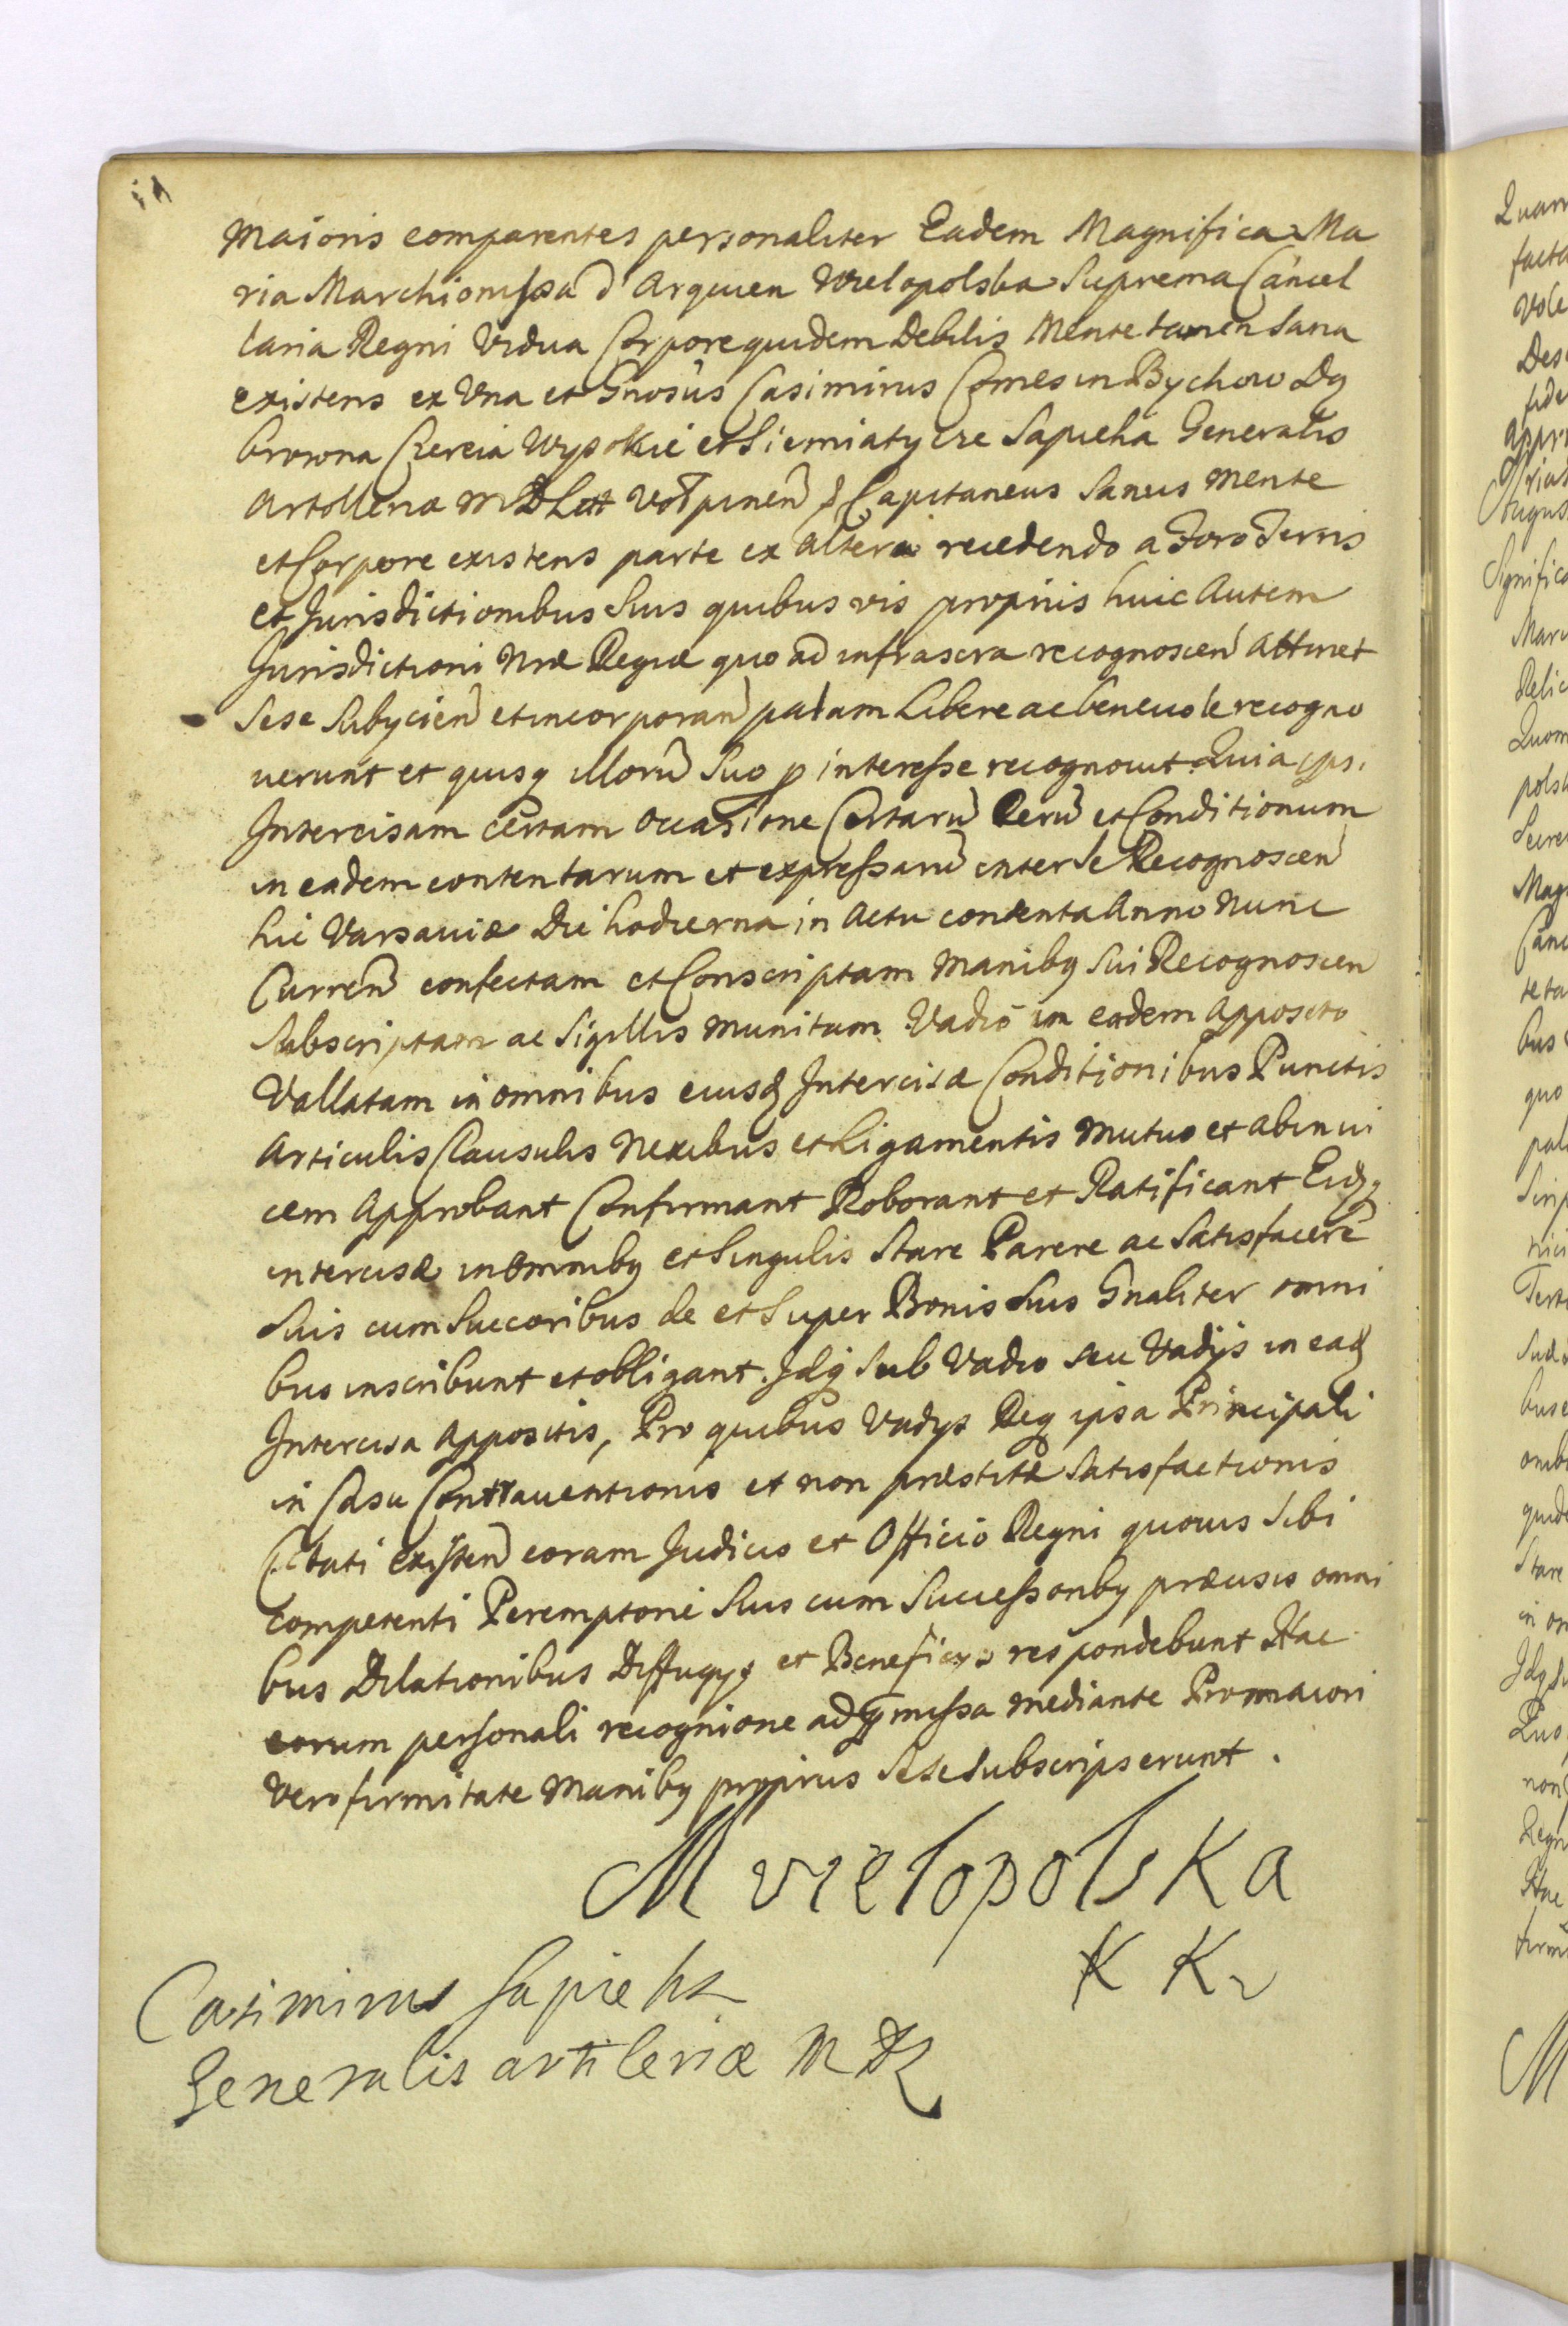 Maioris comparentes personaliter Eadem Magnifica Ma
ria Marchionissa d'Arquien Wielopolska Suprema Cancel
laria Regni Vidua Corpore quidem Debilis Mente tamen sana
existens ex Una et Gnosus Casimirus Comes in Bychow Dą
browna Czereia Wysokie et Siemiatycze Sapieha Generalis
Artolleria M D Litt Capitaneus Sanus Mente
et Corpore existens parte ex Altera recedendo a Foro Terris
et Jurisdictionibus Suis quibus vis propriis huic Autem
Jurisdictioni Nrae Regiae quo ad infrascra recognoscen attinet
Sese Subijcien et incorporan palam Libere ac benevole recogno
uerunt et quisq illoru Suo p interesse recognouit Quia ipsi
Intercisam certam occasione Certaru Reru et Conditionum
in eadem contentarum et expressaru inter se Recognoscen
hic Varsauiae Die hodierna in Actu contenta Anno Nunc
Curren confectam et Conscriptam Manibq Sui Recognoscen
Subscriptam ac Sigillis munitam Vadio in eadem Apposito
Vallatam in omnibus eiusd Intercisae Conditionibus Punctis
Articulis Clausulis Nexibus et Ligamentis Mutuo et abinui
cem Approbant Confirmant Roborant et Ratificant Eidq
intercisae in Omnibq et Singulis Stare Parere ac Satisfacere
Suis cum Succoribus de et Super Bonis Suis Gnaliter omni
bus inscribunt et obligant. Idq Sub Vadio seu Vadijs in ead
Intercisa Appositis, Pro quibus Vadys Req ipsa Principali
in Casu Contrauentionis et non praestitae Satisfactionis
Citati existen coram Judicio et Officio Regni quouis Sibi
competenti Peremptorie Suis cum Successoribq praecisis omni
bus Dilationibus Diffugys et Beneficys respondebunt Hac
eorum personali recognione ad praemissa mediante Pro maiori
vero firmitate Manibq propriis Sese subscripserunt.
M vielopolska
K K
Casimirus Sapieha
Generalis artileriae M D L